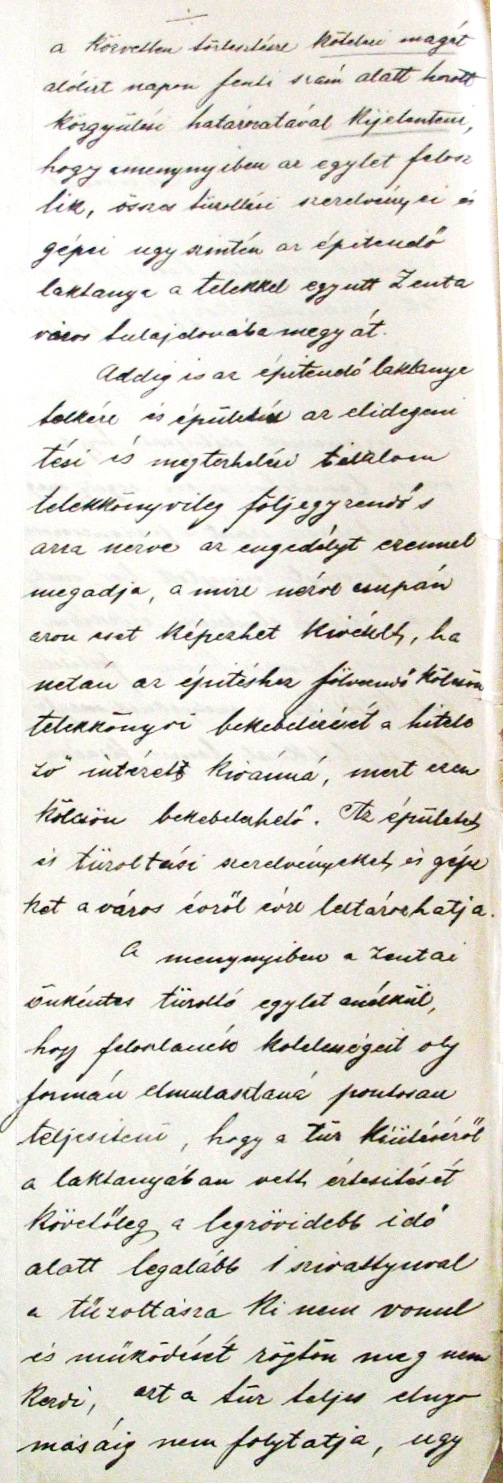 a közvetlen törlesztésre kötelezi magát
alólirt napon fenti szám alatt hozott
közgyülési határozatával kijelenteni,
hogy amenynyiben az egylet felosz
lik, összes tüzoltési szerelvényei és
gépei ugy szintén az épitendő
laktanya a telekkel együtt Zenta
város tulajdonába megy át.
Addig is az épitendő laktanya
telkére és épületére az elidegeni
tési és megterhelési tilalom
telekkönyvileg följegyzendő s
arra nézve az engedélyt ezennel
megadja, a mire nézve csupán
azon eset képezhet kivételt, ha
netán az épitéshez fölveendő kölcsön
telekkönyvi bekebelezését a hitele
ző intézet kivánná, mert ezen
kölcsön bekebelezhető. Az épületet
és tüzoltási szerelvényeket és gépe
ket a város évről évre leltározhatja.
A menynyiben a zentai
önkéntes tüzoltó egylet anélkül,
hogy feloszlanék kötelességeit oly
formán elmulasztaná pontosan
teljesiteni, hogy a tüz kiütéséről
a laktanyában vett értesitését
követőleg a legrövidebb idő
alatt legalább 1 szivattyuval
a tűzoltásra ki nem vonul
és működését rögtön meg nem
kezdi, azt a tüz teljes elnyo
másáig nem folytatja, ugy